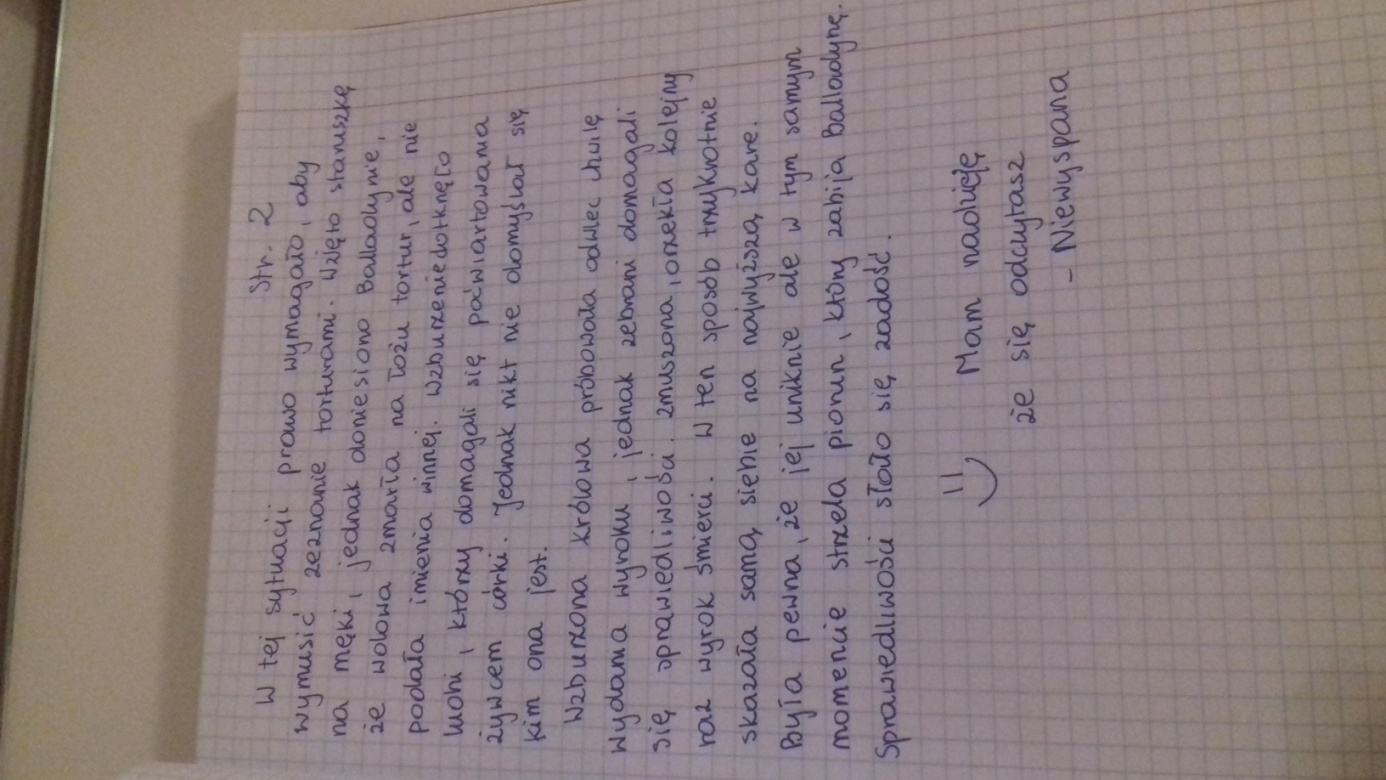 Str. 2
W tej sytuacji prawo wymagało, aby
wymusić zeznanie torturami. Wzięto staruszkę
na męki, jednak doniesiono Balladynie,
że wdowa zmarła na łożu tortur, ale nie
podała imienia winnej. Wzburzenie dotknęło
ludzi, którzy domagali się poćwiartowania
żywcem córki. Jednak nikt nie domyślał się
kim ona jest.
Wzburzona królowa próbowała odwlec chwilę
wydania wyroku, jednak zebrani domagali
się sprawiedliwości. Zmuszona, orzekła kolejny
raz wyrok śmierci. W ten sposób trzykrotnie
skazała samą siebie na najwyższą karę.
Była pewna, że jej uniknie ale w tym samym
momencie strzela piorun, który zabija Balladynę.
Sprawiedliwości stało się zadość.
=) Mam nadzieję
że się odczytasz
- Niewyspana